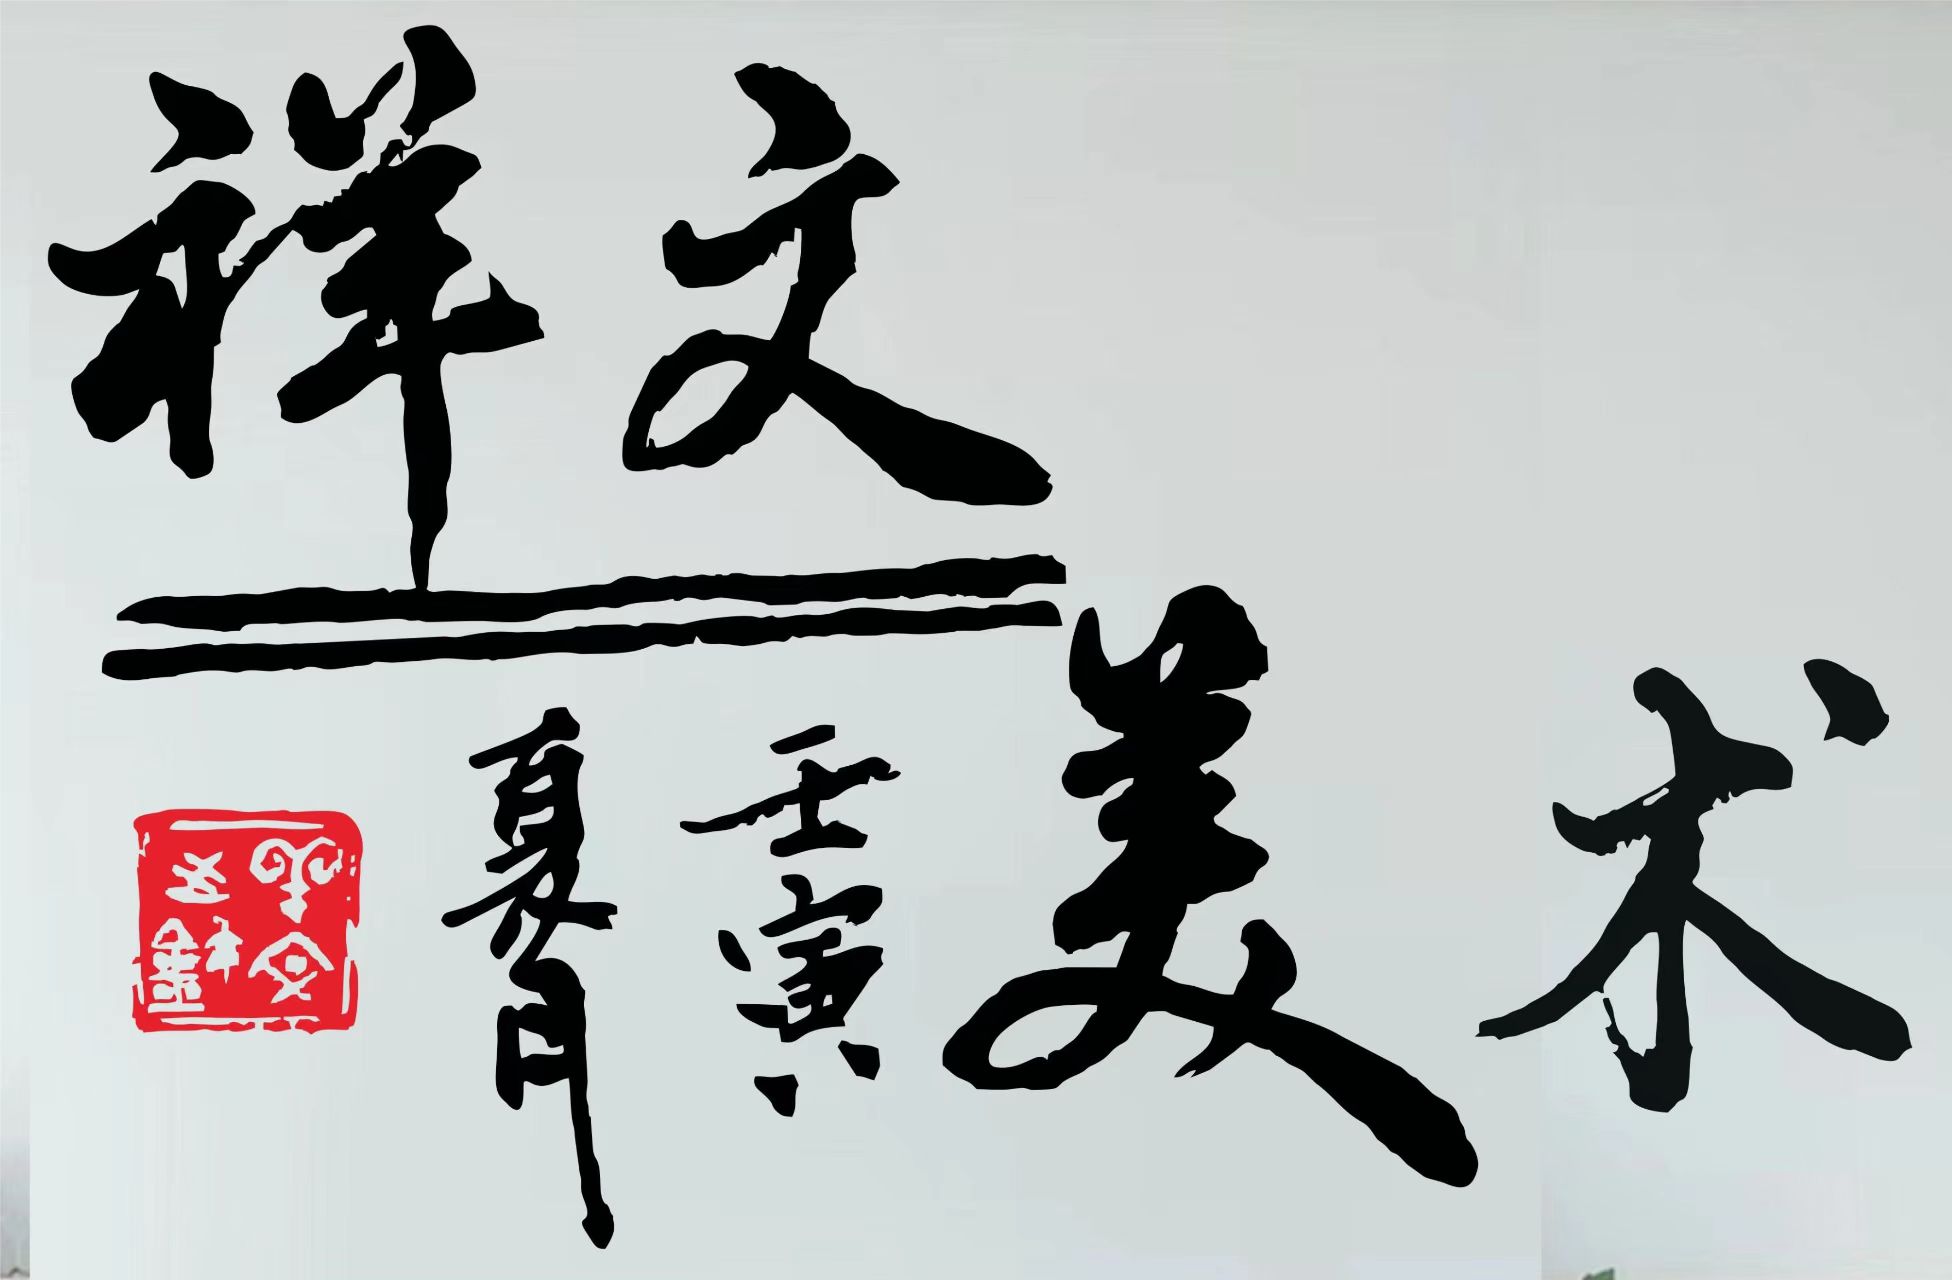 祥文
美术
壬寅
夏月